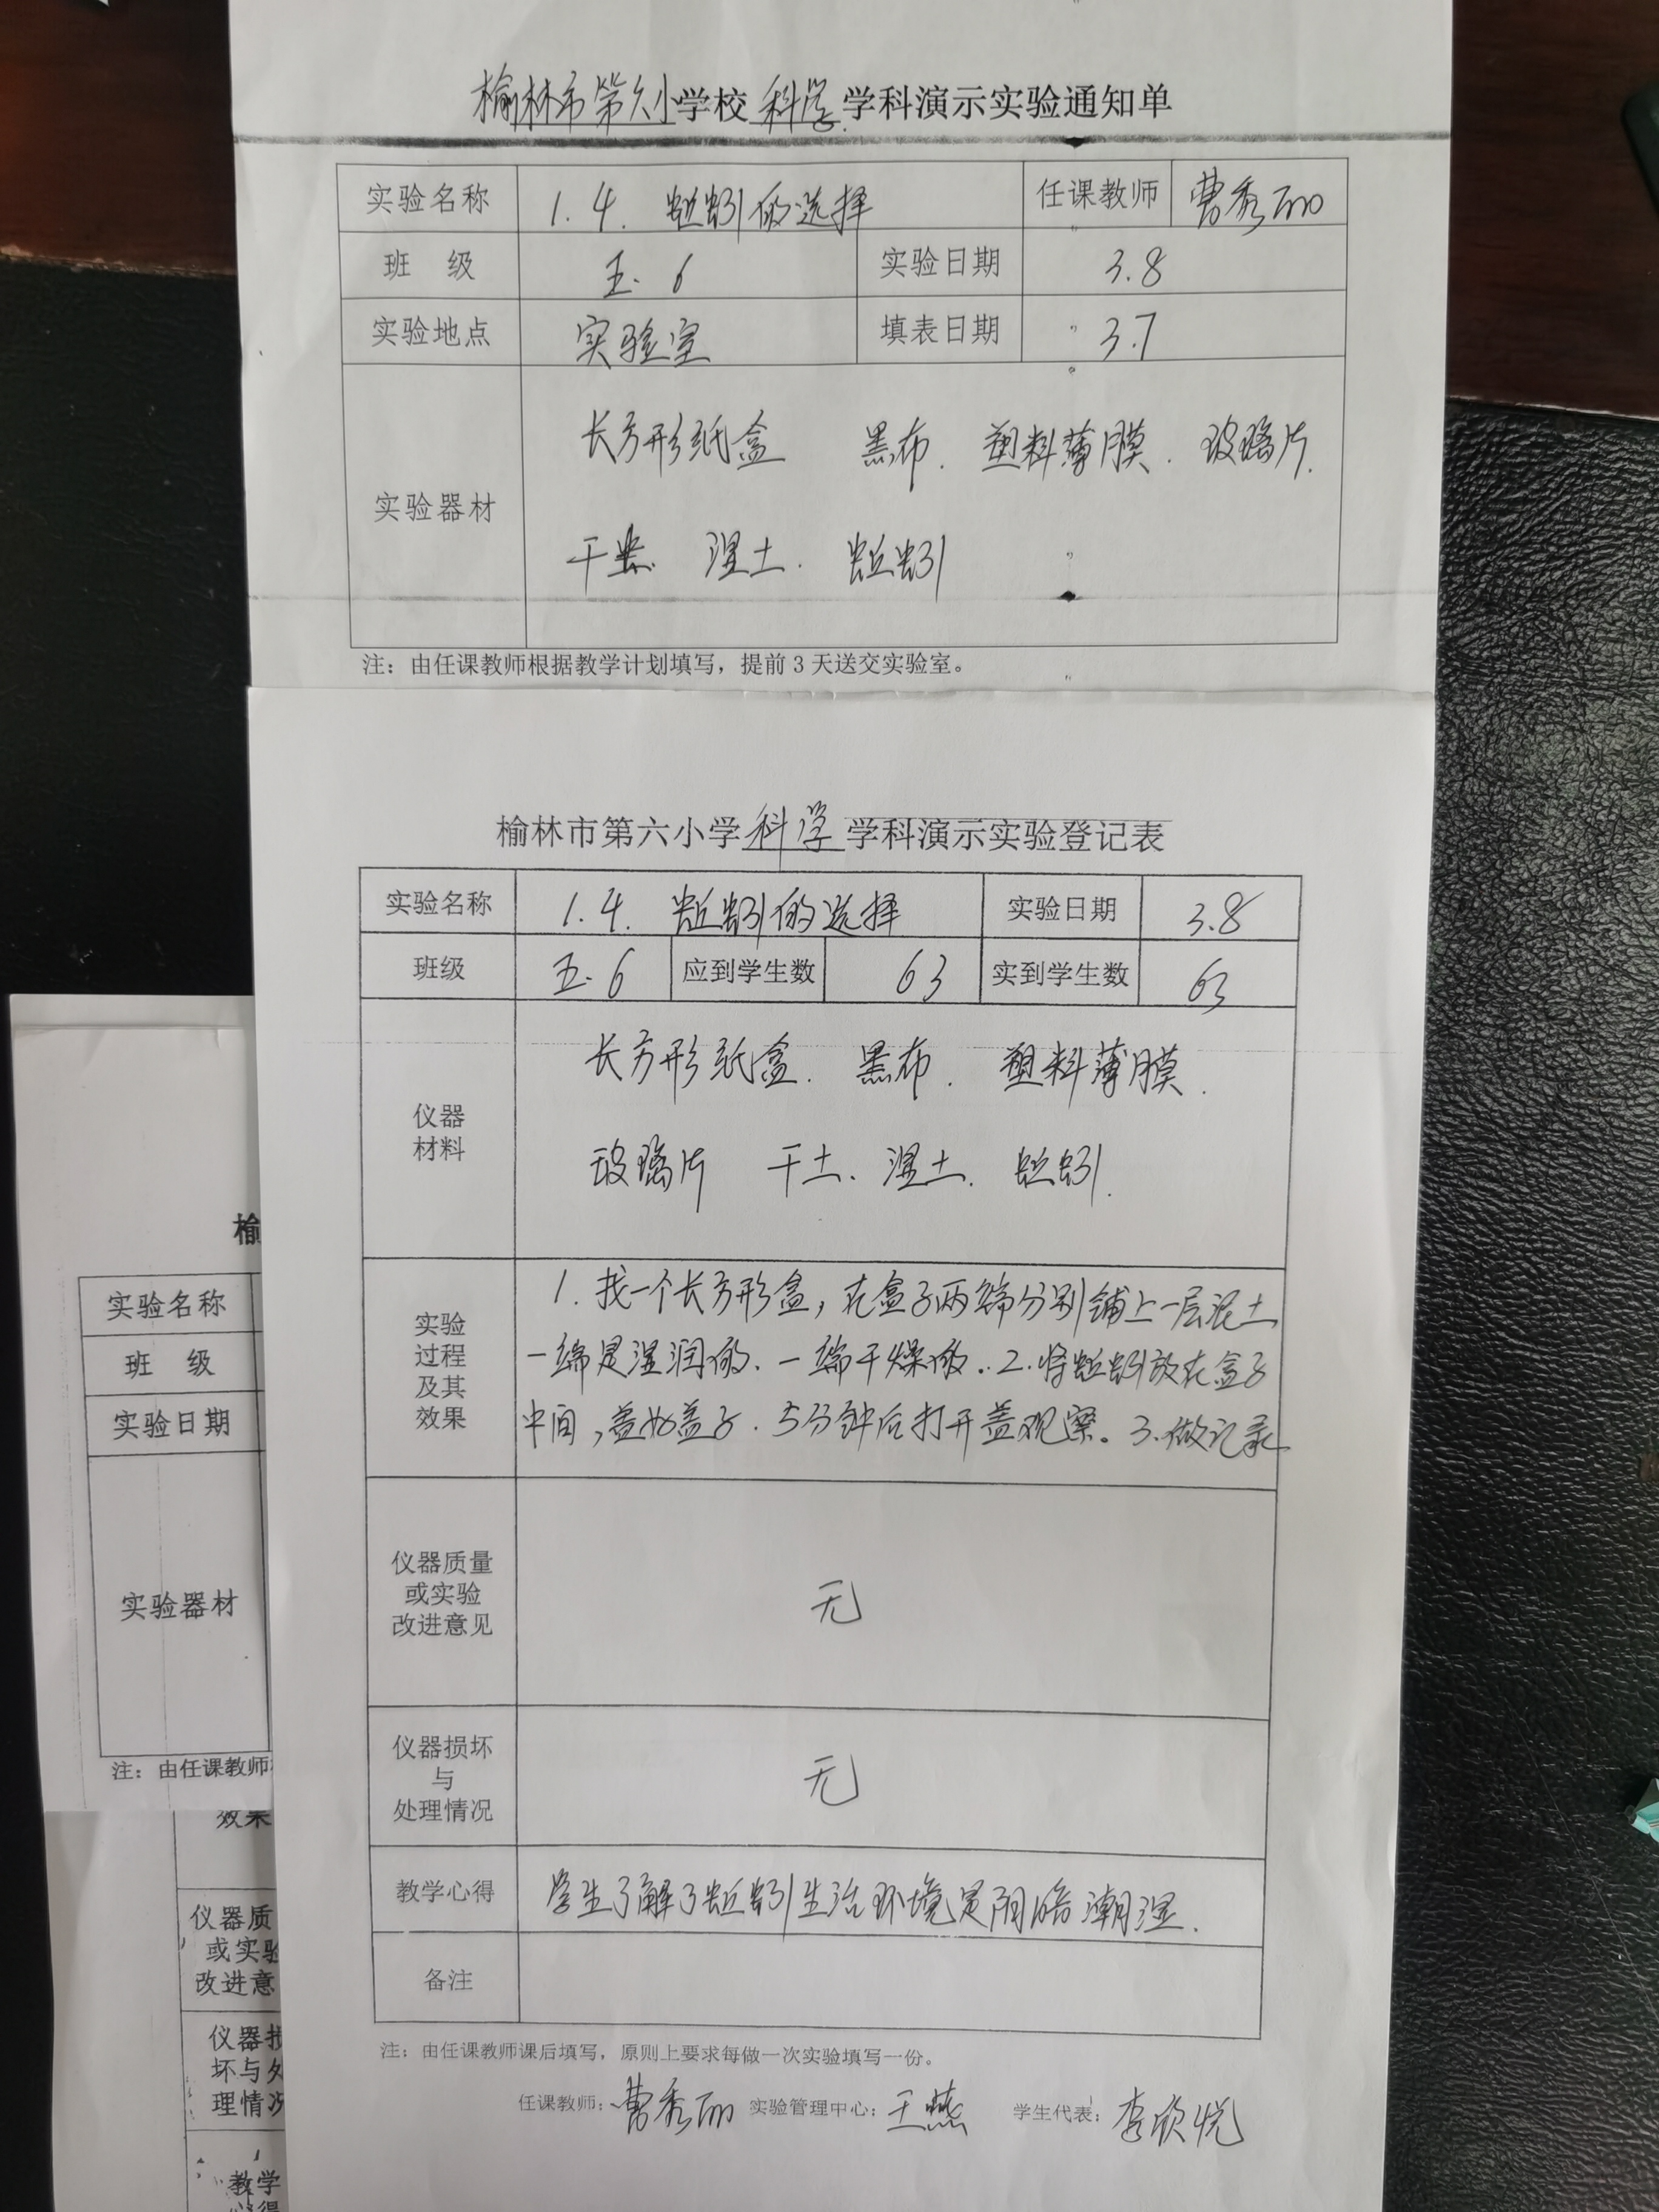 榆林市第六小学校科学学科演示实验通知单
实验名称 1.4. 蚯蚓的选择 任课教师 曹秀丽
班 级 五.6 实验日期 3.8
实验地点 实验室 填表日期 3.7
实验器材
长方形纸盒 黑布. 塑料薄膜. 玻璃片.
干土. 湿土. 蚯蚓
注：由任课教师根据教学计划填写，提前3天送交实验室。
榆林市第六小学科学学科演示实验登记表
实验名称 1.4. 蚯蚓的选择 实验日期 3.8
班级 五.6 应到学生数 63 实到学生数 63
仪器
材料
长方形纸盒. 黑布. 塑料薄膜.
玻璃片 干土、湿土. 蚯蚓.
实验
过程
及其
效果
1. 找一个长方形盒，在盒子两端分别铺上一层泥土
一端是湿润的、一端干燥的..2.将蚯蚓放在盒子
中间，盖好盖子.5分钟后打开盖观察。3.做记录
仪器质量
或实验
改进意见
无
仪器损坏
与
处理情况
无
教学心得 学生了解了蚯蚓生活环境是阴暗潮湿.
备注
注：由任课教师课后填写，原则上要求每做一次实验填写一份。
任课教师：曹秀丽 实验管理中心：王燕 学生代表：李欣悦
榆
实验名称
班 级
实验日期
实验器材
注：由任课教师
效果
仪器质
或实验
改进意
仪器损
坏与处
理情况
教学
心得